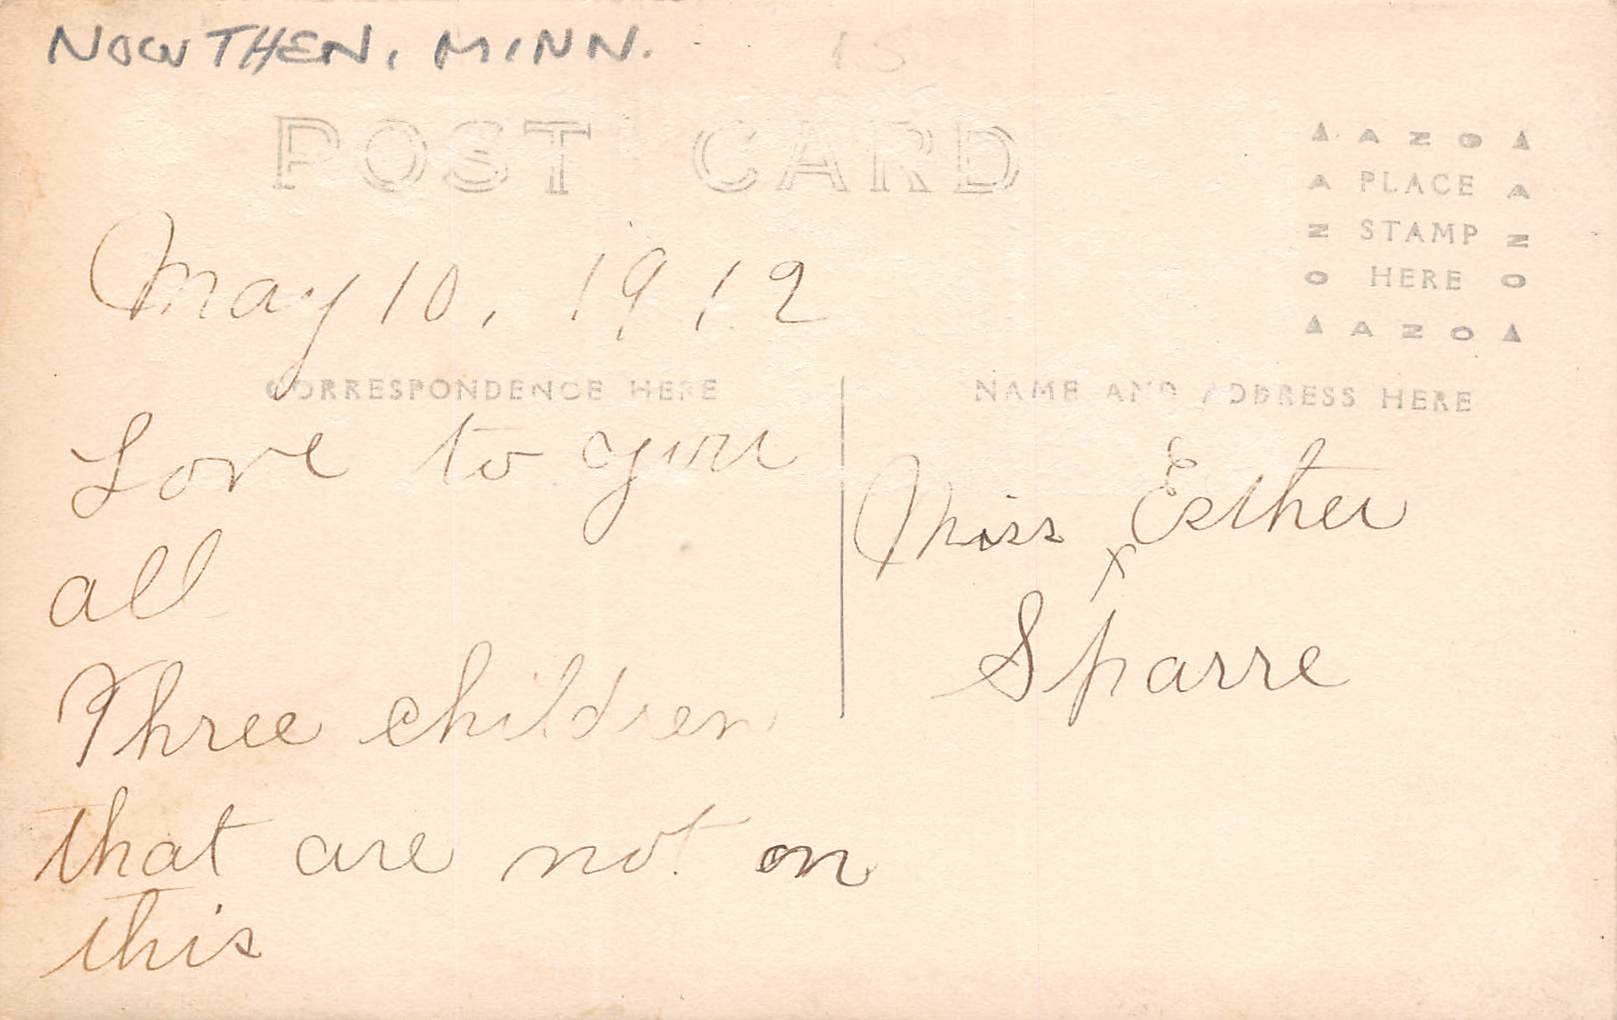 NOWTHEN, MINN. 15
POST CARD
▲ AZO ▲
A PLACE A
Z STAMP Z
O HERE O
▲ AZO ▲
May 10, 1912
CORRESPONDENCE HERE
NAME AND ADDRESS HERE
Love to you
all
Three children
that are not on
this
Miss Esther
x
Sparre